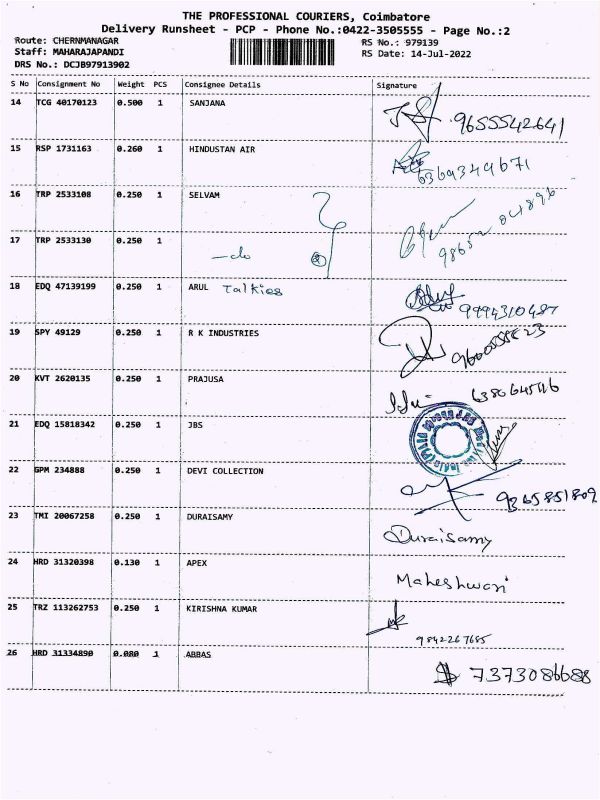 THE PROFESSIONAL COURIERS, Coimbatore
Delivery Runsheet - PCP - Phone No.:0422-3505555 - Page No.:2
Route: CHERNMANAGAR RS No.: 979139
Staff: MAHARAJAPANDI RS Date: 14-Jul-2022
DRS No.: DCJB97913902
S No Consignment No Weight PCS Consignee Details Signature
14 TCG 40170123 0.500 1 SANJANA
9655542641
15 RSP 1731163 0.260 1 HINDUSTAN AIR
6369349671
16 TRP 2533108 0.250 1 SELVAM
17 TRP 2533130 0.250 1
-do
18 EDQ 47139199 0.250 1 ARUL Talkies
9994310487
19 SPY 49129 0.250 1 R K INDUSTRIES
20 KVT 2620135 0.250 1 PRAJUSA
21 EDQ 15818342 0.250 1 JBS
22 GPM 234888 0.250 1 DEVI COLLECTION
9365851809
23 TMI 20067258 0.250 1 DURAISAMY
Duraisamy
24 HRD 31320398 0.130 1 APEX
Maheshwari
25 TRZ 113262753 0.250 1 KIRISHNA KUMAR
9842267685
26 HRD 31334890 0.080 1 ABBAS
7373086688